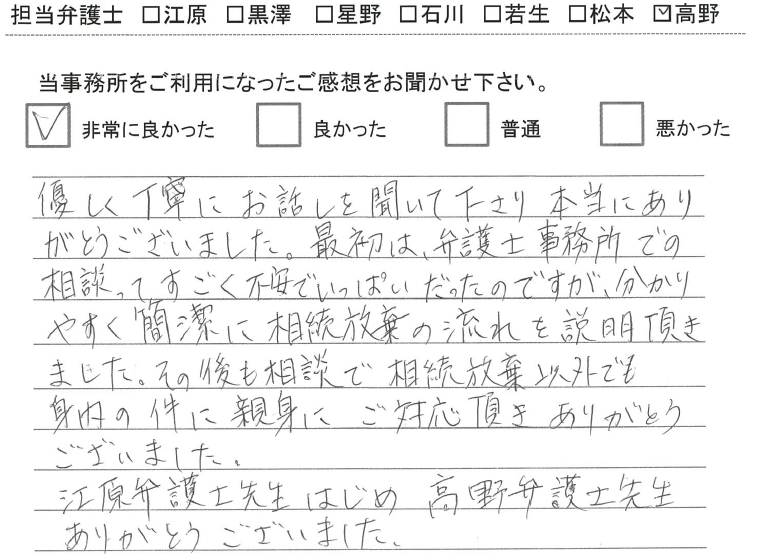 担当弁護士 □江原 □黒澤 □星野 □石川 □若生 □松本 ☑高野
当事務所をご利用になったご感想をお聞かせ下さい。
☑ 非常に良かった □ 良かった □ 普通 □ 悪かった
優しく丁寧にお話しを聞いて下さり本当にあり
がとうございました。最初は、弁護士事務所での
相談ってすごく不安でいっぱいだったのですが、分かり
やすく簡潔に相続放棄の流れを説明頂き
ました。その後も相談で相続放棄以外でも
身内の件に親身にご対応頂きありがとう
ございました。
江原弁護士先生はじめ 高野弁護士先生
ありがとうございました。